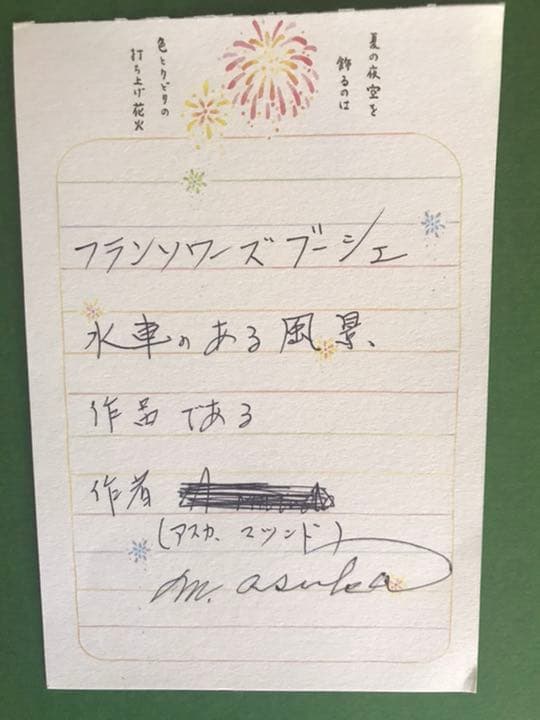 夏の夜空を
飾るのは
色とりどりの
打ち上げ花火
フランソワーズブーシェ
水車のある風景、
作品である
作者
(アスカ、マツンド)
m. asuka